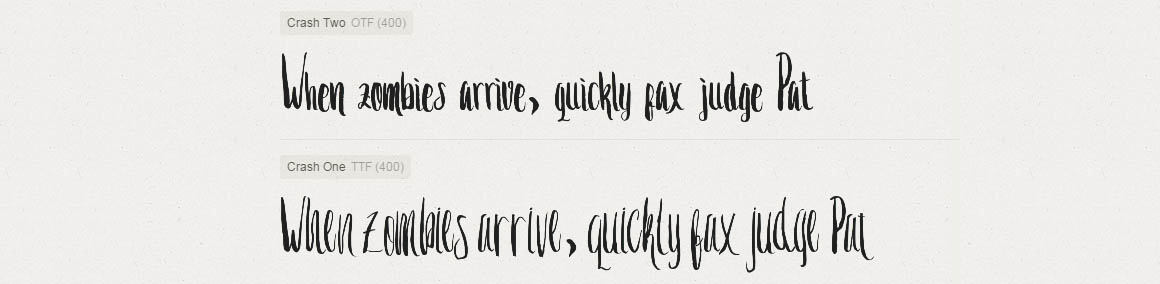 Crash Two OTF (400)
When zombies arrive, quickly fax judge Pat
Crash One TTF (400)
When zombies arrive, quickly fax judge Pat